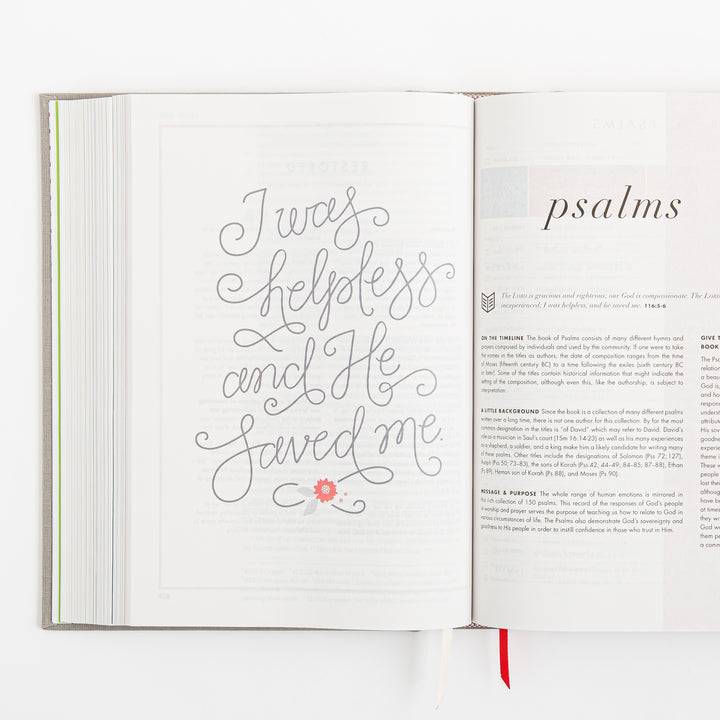 I was
helpless
and He
saved me.
psalms
The LORD is gracious and righteous; our God is compassionate. The LORD
inexperienced; I was helpless, and he saved me. 116:5-6
ON THE TIMELINE The book of Psalms consists of many different hymns and
prayers composed by individuals and used by the community. If one were to take
the names in the titles as authors, the date of composition ranges from the time
of Moses (fifteenth century BC) to a time following the exiles (sixth century BC
or later). Some of the titles contain historical information that might indicate the
setting of the composition, although even this, like the authorship, is subject to
interpretation.
A LITTLE BACKGROUND Since the book is a collection of many different psalms
written over a long time, there is not one author for this collection. By far the most
common designation in the titles is "of David" which may refer to David. David's
role as a musician in Saul's court (1Sm 16:14-23) as well as his many experiences
as a shepherd, a soldier, and a king make him a likely candidate for writing many
of these psalms. Other titles include the designations of Solomon (Pss 72; 127),
Asaph (Pss 50; 73–83), the sons of Korah (Pss 42; 44–49; 84–85; 87–88), Ethan
(Ps 89), Heman (son of Korah (Ps 88), and Moses (Ps 90).
MESSAGE & PURPOSE The whole range of human emotions is mirrored in
this rich collection of 150 psalms. This record of the responses of God's people
in worship and prayer serves the purpose of teaching us how to relate to God in
various circumstances of life. The Psalms also demonstrate God's sovereignty and
goodness to His people in order to instill confidence in those who trust in Him.
GIVE
BOOK
The Psa
relation
a beau
God is,
and ho
respon
underst
attribut
His sov
goodne
experie
theme i
These v
of peop
lost the
althoug
have b
at time
they wr
God w
them pe
a comm